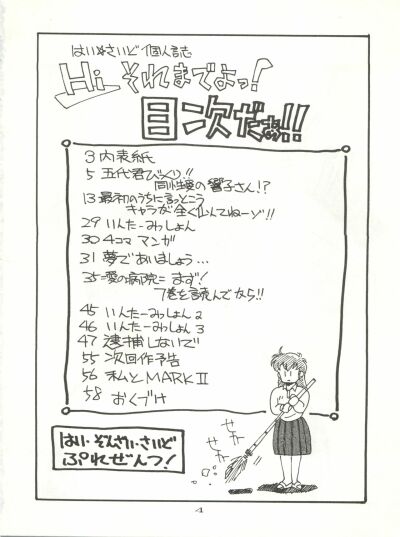 はい☆さいど 個人誌
Hi それまでよっ!
目次だぉ!!
3 内表紙
5 五代君びっくり!!
同棲の響子さん!?
13 最初のうちに言っとこう
キャラが全く似んてねーゾ!!
29 いんたーみっしょん
30 4コママンガ
31 夢であいましょう…
35 =愛の病院= まず!
7巻を読んでなら!!
45 いんたーみっしょん2
46 いんたーみっしょん3
47 逮捕しないで
55 次回作予告
56 私とMARKⅡ
58 おくづけ
せか
せか
はい・ぞんざい・さいど
ぷれぜんつ!
4